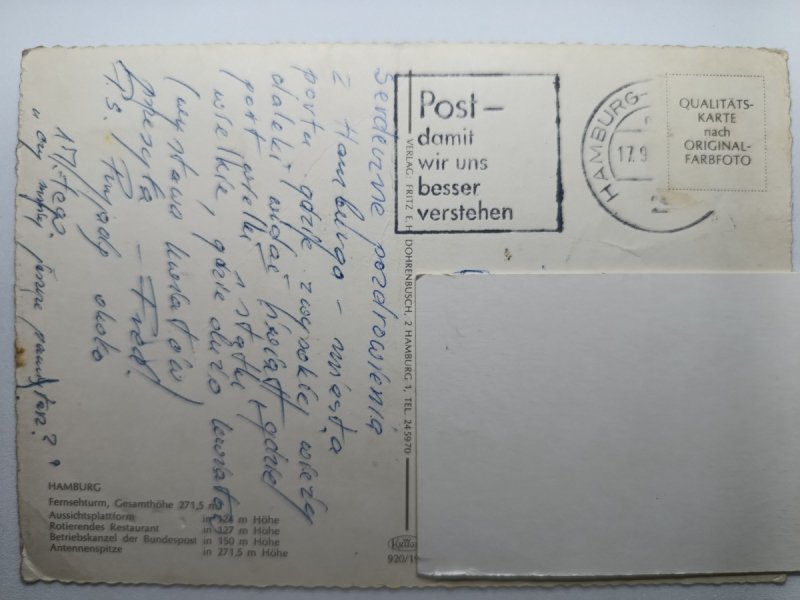 Serdeczne pozdrowienia
z Hamburga – miasta
portu gdzie z wysokiej wieży
daleki widać świat gdzie
port wielki i statki
wielkie, gdzie dużo kwiatów
(wystawa kwiatów)
przesyła – Fred.
P.s. Przyjadę około
tego.
"Czy mnie jeszcze pamiętasz?"
Post –
damit
wir uns
besser
verstehen
HAMBURG-
17.9
2
QUALITÄTS-
KARTE
nach
ORIGINAL-
FARBFOTO
VERLAG: FRITZ E.H. DOHRENBUSCH, 2 HAMBURG 1, TEL. 245970
HAMBURG
Fernsehturm, Gesamthöhe 271,5 m
Aussichtsplattform in 124 m Höhe
Rotierendes Restaurant in 127 m Höhe
Betriebskanzel der Bundespost in 150 m Höhe
Antennenspitze in 271,5 m Höhe
KRÜGER